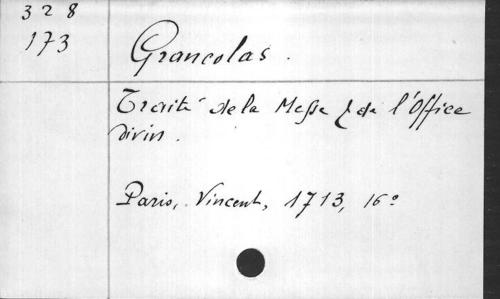 328
173
Grancolas.
Traité de la Messe & de l'Office
divin.
Paris, Vincent, 1713, 16º